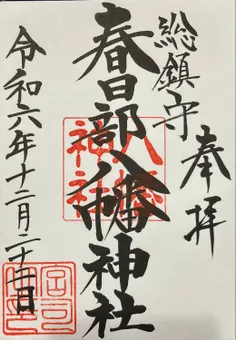 奉拝
総鎮守
春日部八幡神社
八幡
神社
令和六年十二月二十
日